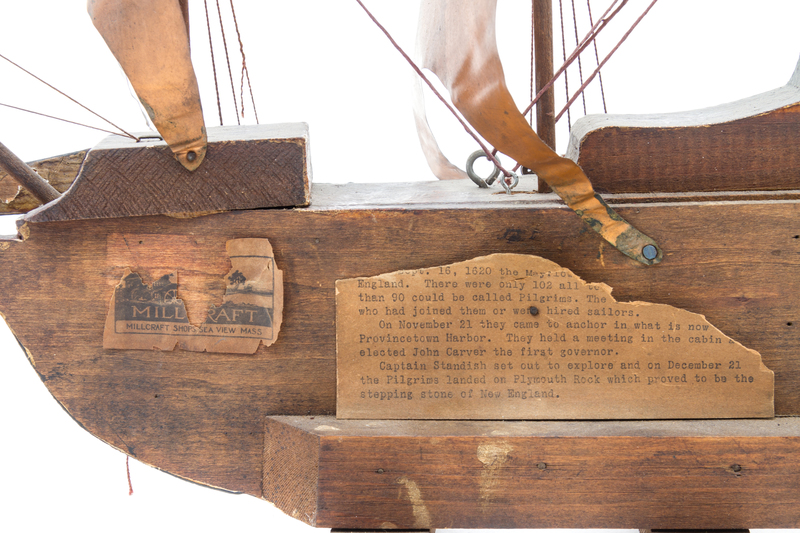 MILLCRAFT
MILLCRAFT SHOPS SEA VIEW MASS.
pt. 16, 1620 the Mayflo
England. There were only 102 all
than 90 could be called Pilgrims. The
who had joined them or were hired sailors.
On November 21 they came to anchor in what is now
Provincetown Harbor. They held a meeting in the cabin
elected John Carver the first governor.
Captain Standish set out to explore and on December 21
the Pilgrims landed on Plymouth Rock which proved to be the
stepping stone of New England.